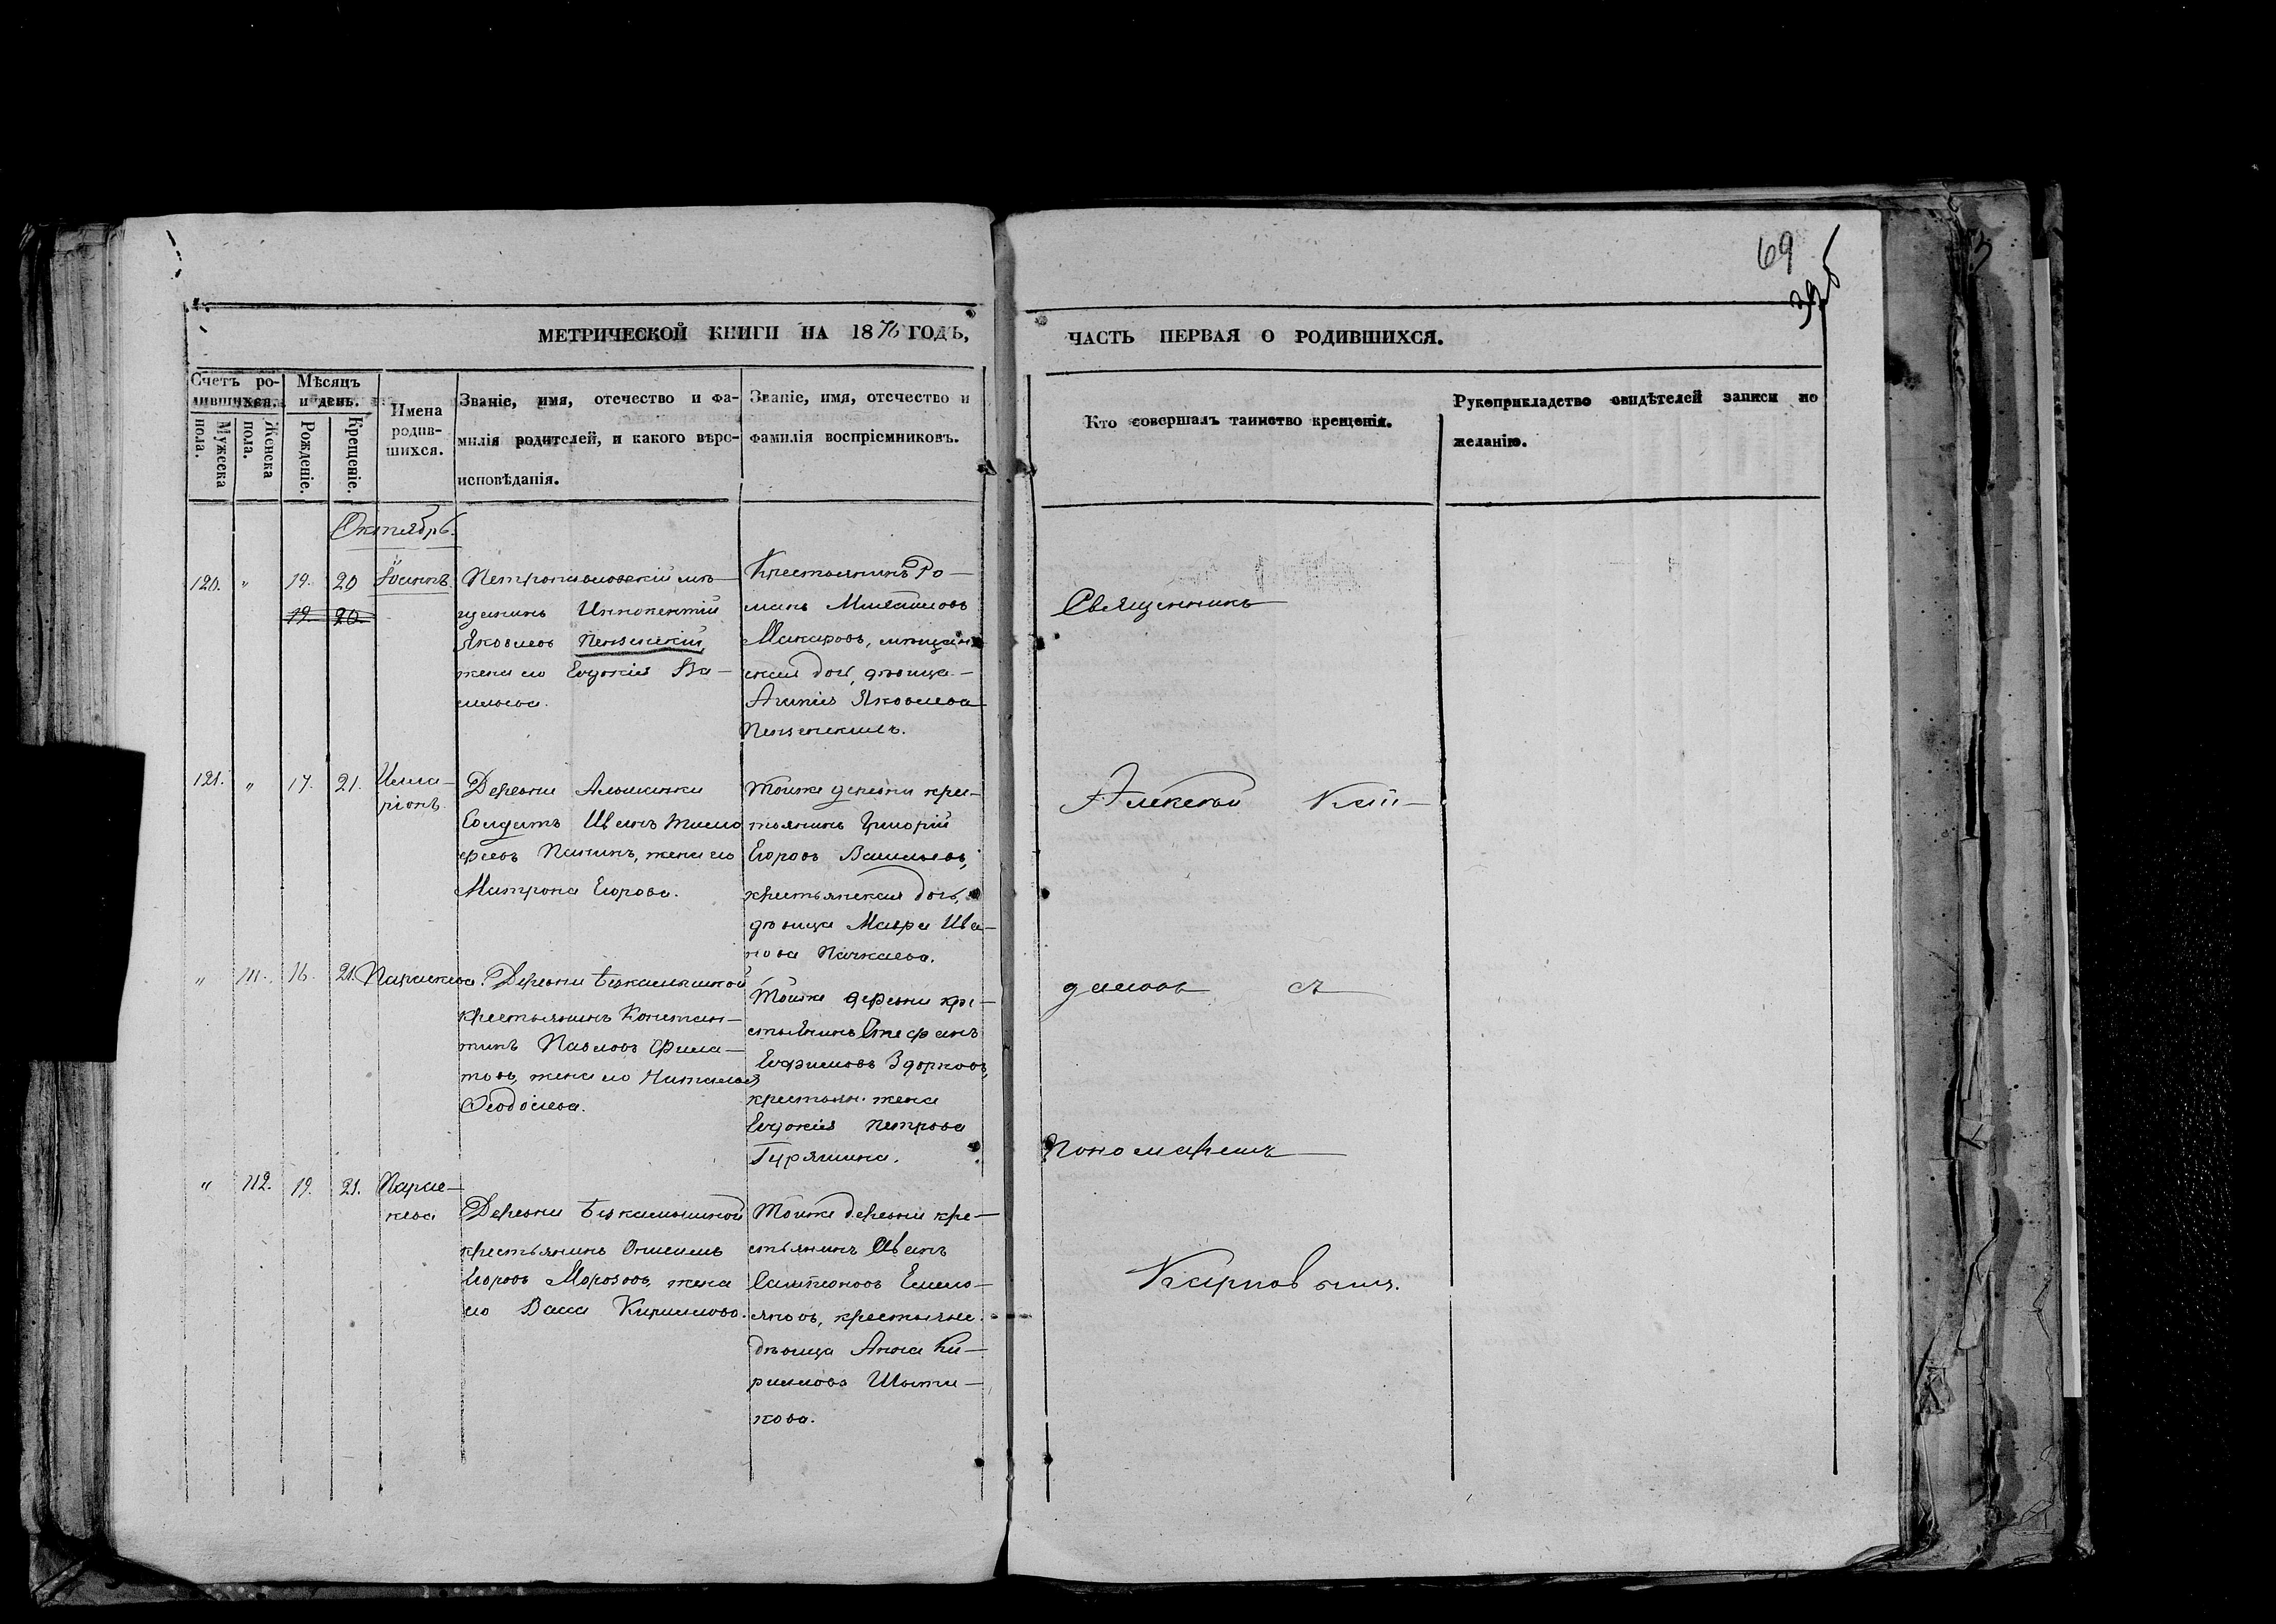 69
396
МЕТРИЧЕСКОЙ КНИГИ НА 1876 ГОДЪ,
ЧАСТЬ ПЕРВАЯ О РОДИВШИХСЯ.
Счетъ ро-
дившихся.
Мужеска
пола.
Женска
пола.
Мѣсяцъ
и день.
Рожденіе.
Крещеніе.
Имена
родив-
шихся.
Званіе, имя, отечество и фа-
милія родителей, и какого вѣро-
исповѣданія.
Званіе, имя, отечество и
фамилія воспріемниковъ.
Кто совершалъ таинство крещенія.
Рукоприкладство свидѣтелей записи по
желанію.
Октябрь.
120. " 19. 20 Іоаннъ.
19. 20.
Петропавловскій мѣ-
щанинъ Иннокентій
Яковлевъ Пензенскій,
жена его Евдокія Ва-
сильева.
Крестьянинъ Ро-
манъ Михайловъ
Макаровъ, мѣщан
ская дочь, дѣвица
Яковлева
121. " 17. 21. Илла-
ріонъ.
Деревни
Солдатъ Иванъ Тимо
феевъ Панинъ, жена его
Матрона Егорова.
Тойже деревни кре-
тьянинъ Григорій
Егоровъ Васильевъ,
крестьянская дочь,
дѣвица Мавра Ива-
нова
" 111. 16. 21. Параскева.
Деревни
крестьянинъ Констан-
тинъ Павловъ Фила-
товъ, жена его Наталья
Феодосіева.
Тойже деревни кре-
стьянинъ Стефанъ
Ефимовъ
крестьян. жена
Евдокія Петрова
Гуряшина.
" 112. 19. 21. Парас-
кева
Деревни
крестьянинъ Онисимъ
Егоровъ Морозовъ, жена
его Васса Кириллова.
Тойже деревни кре-
стьянинъ Иванъ
Сампсоновъ Емель-
яновъ,
дѣвица Анна Ки-
риллова
кова.
Священникъ
Алексѣй Кай-
даловъ съ
Пономаремъ
Карповымъ.